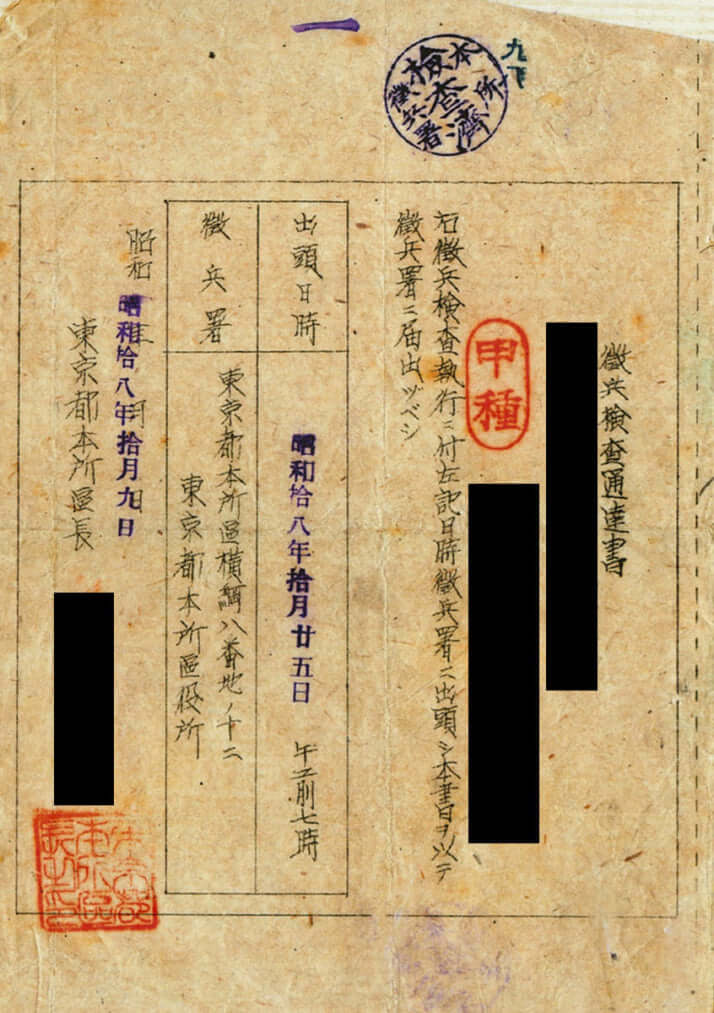 一
本所
檢査濟
徴兵署
九
徴兵檢査通達書
甲種
右徴兵檢査執行ニ付左記日時徴兵署ニ出頭シ本書ヲ以テ
徴兵署ニ届出ヅベシ
出頭日時
昭和拾八年拾月廿五日 午前七時
徴兵署
東京都本所區横網八番地ノ十二
東京都本所區役所
昭和 年 月 日
昭和拾八年拾月九日
東京都本所區長
東京都
本所區
長之印